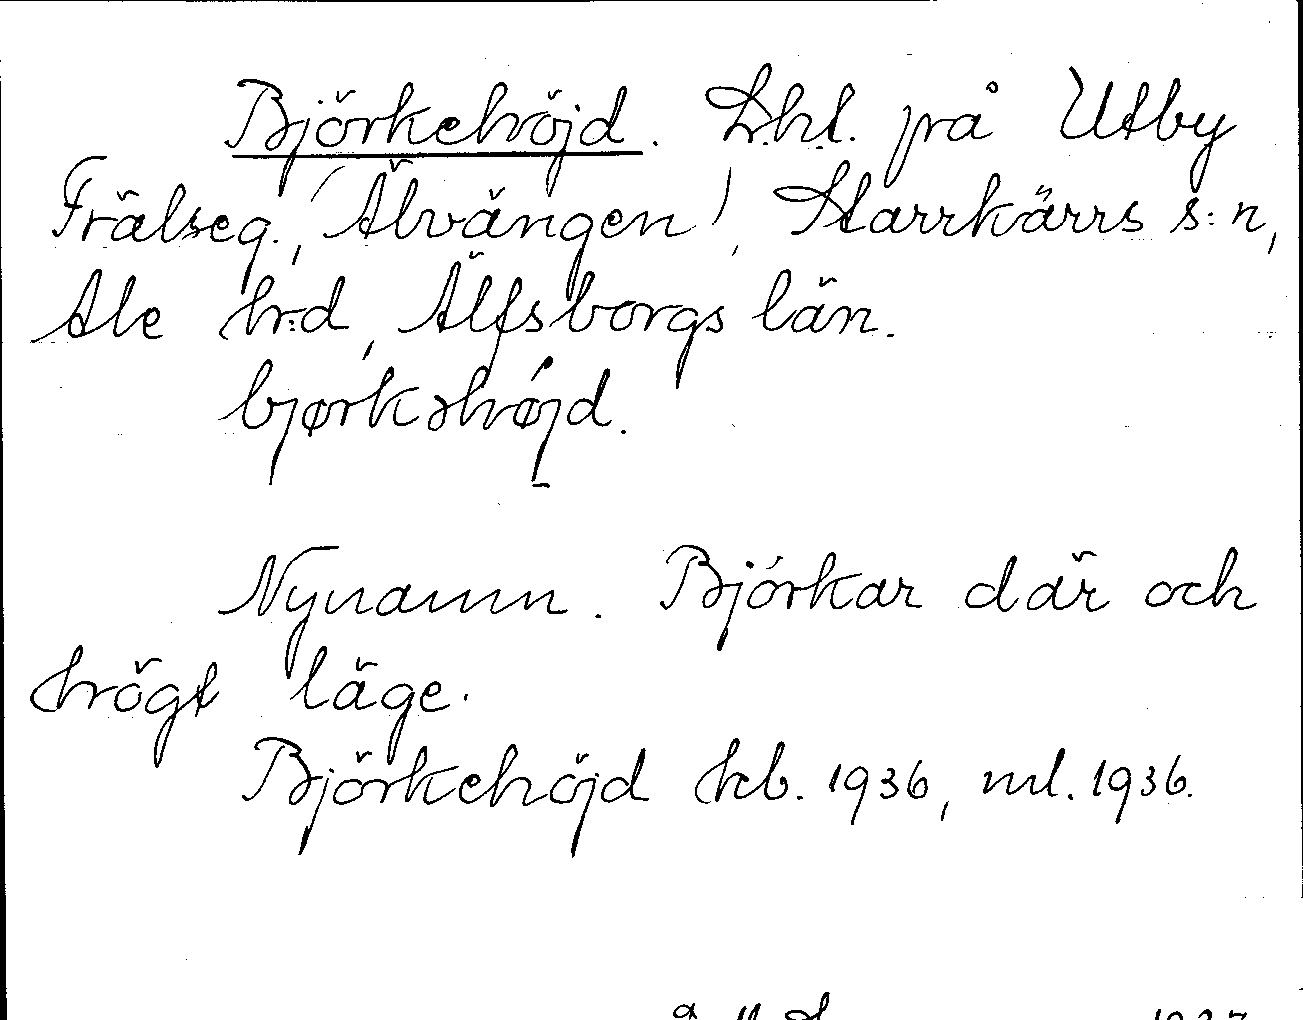 Björkehöjd. Lht. på Utby
Frälseg., (Älvängen), Starrkärrs s:n,
Ale hrd, Älfsborgs län.
bjørkəhøjd.
Nynamn. Björkar där och
högt läge.
Björkehöjd kb. 1936, ml. 1936.